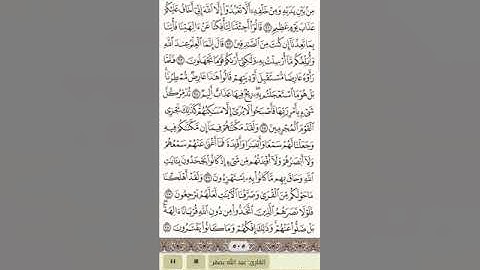 مِنْ بَيْنِ يَدَيْهِ وَمِنْ خَلْفِهِ أَلَّا تَعْبُدُوا إِلَّا اللَّهَ إِنِّي أَخَافُ عَلَيْكُمْ
عَذَابَ يَوْمٍ عَظِيمٍ ۝٢١ قَالُوا أَجِئْتَنَا لِتَأْفِكَنَا عَنْ ءَالِهَتِنَا فَأْتِنَا
بِمَا تَعِدُنَا إِن كُنتَ مِنَ الصَّٰدِقِينَ ۝٢٢ قَالَ إِنَّمَا الْعِلْمُ عِندَ اللَّهِ
وَأُبَلِّغُكُم مَّا أُرْسِلْتُ بِهِ وَلَٰكِنِّي أَرَىٰكُمْ قَوْمًا تَجْهَلُونَ ۝٢٣ فَلَمَّا
رَأَوْهُ عَارِضًا مُّسْتَقْبِلَ أَوْدِيَتِهِمْ قَالُوا هَٰذَا عَارِضٌ مُّمْطِرُنَا
بَلْ هُوَ مَا اسْتَعْجَلْتُم بِهِ رِيحٌ فِيهَا عَذَابٌ أَلِيمٌ ۝٢٤ تُدَمِّرُ كُلَّ
شَيْءٍ بِأَمْرِ رَبِّهَا فَأَصْبَحُوا لَا يُرَىٰ إِلَّا مَسَٰكِنُهُمْ كَذَٰلِكَ نَجْزِي
الْقَوْمَ الْمُجْرِمِينَ ۝٢٥ وَلَقَدْ مَكَّنَّٰهُمْ فِيمَا إِن مَّكَّنَّٰكُمْ فِيهِ
وَجَعَلْنَا لَهُمْ سَمْعًا وَأَبْصَٰرًا وَأَفْـِٔدَةً فَمَا أَغْنَىٰ عَنْهُمْ سَمْعُهُمْ
وَلَا أَبْصَٰرُهُمْ وَلَا أَفْـِٔدَتُهُم مِّن شَيْءٍ إِذْ كَانُوا يَجْحَدُونَ بِـَٔايَٰتِ
اللَّهِ وَحَاقَ بِهِم مَّا كَانُوا بِهِ يَسْتَهْزِءُونَ ۝٢٦ وَلَقَدْ أَهْلَكْنَا
مَا حَوْلَكُم مِّنَ الْقُرَىٰ وَصَرَّفْنَا الْءَايَٰتِ لَعَلَّهُمْ يَرْجِعُونَ ۝٢٧
فَلَوْلَا نَصَرَهُمُ الَّذِينَ اتَّخَذُوا مِن دُونِ اللَّهِ قُرْبَانًا ءَالِهَةً
بَلْ ضَلُّوا عَنْهُمْ وَذَٰلِكَ إِفْكُهُمْ وَمَا كَانُوا يَفْتَرُونَ ۝٢٨
٥٠٥
القارئ: عبد الله بصفر